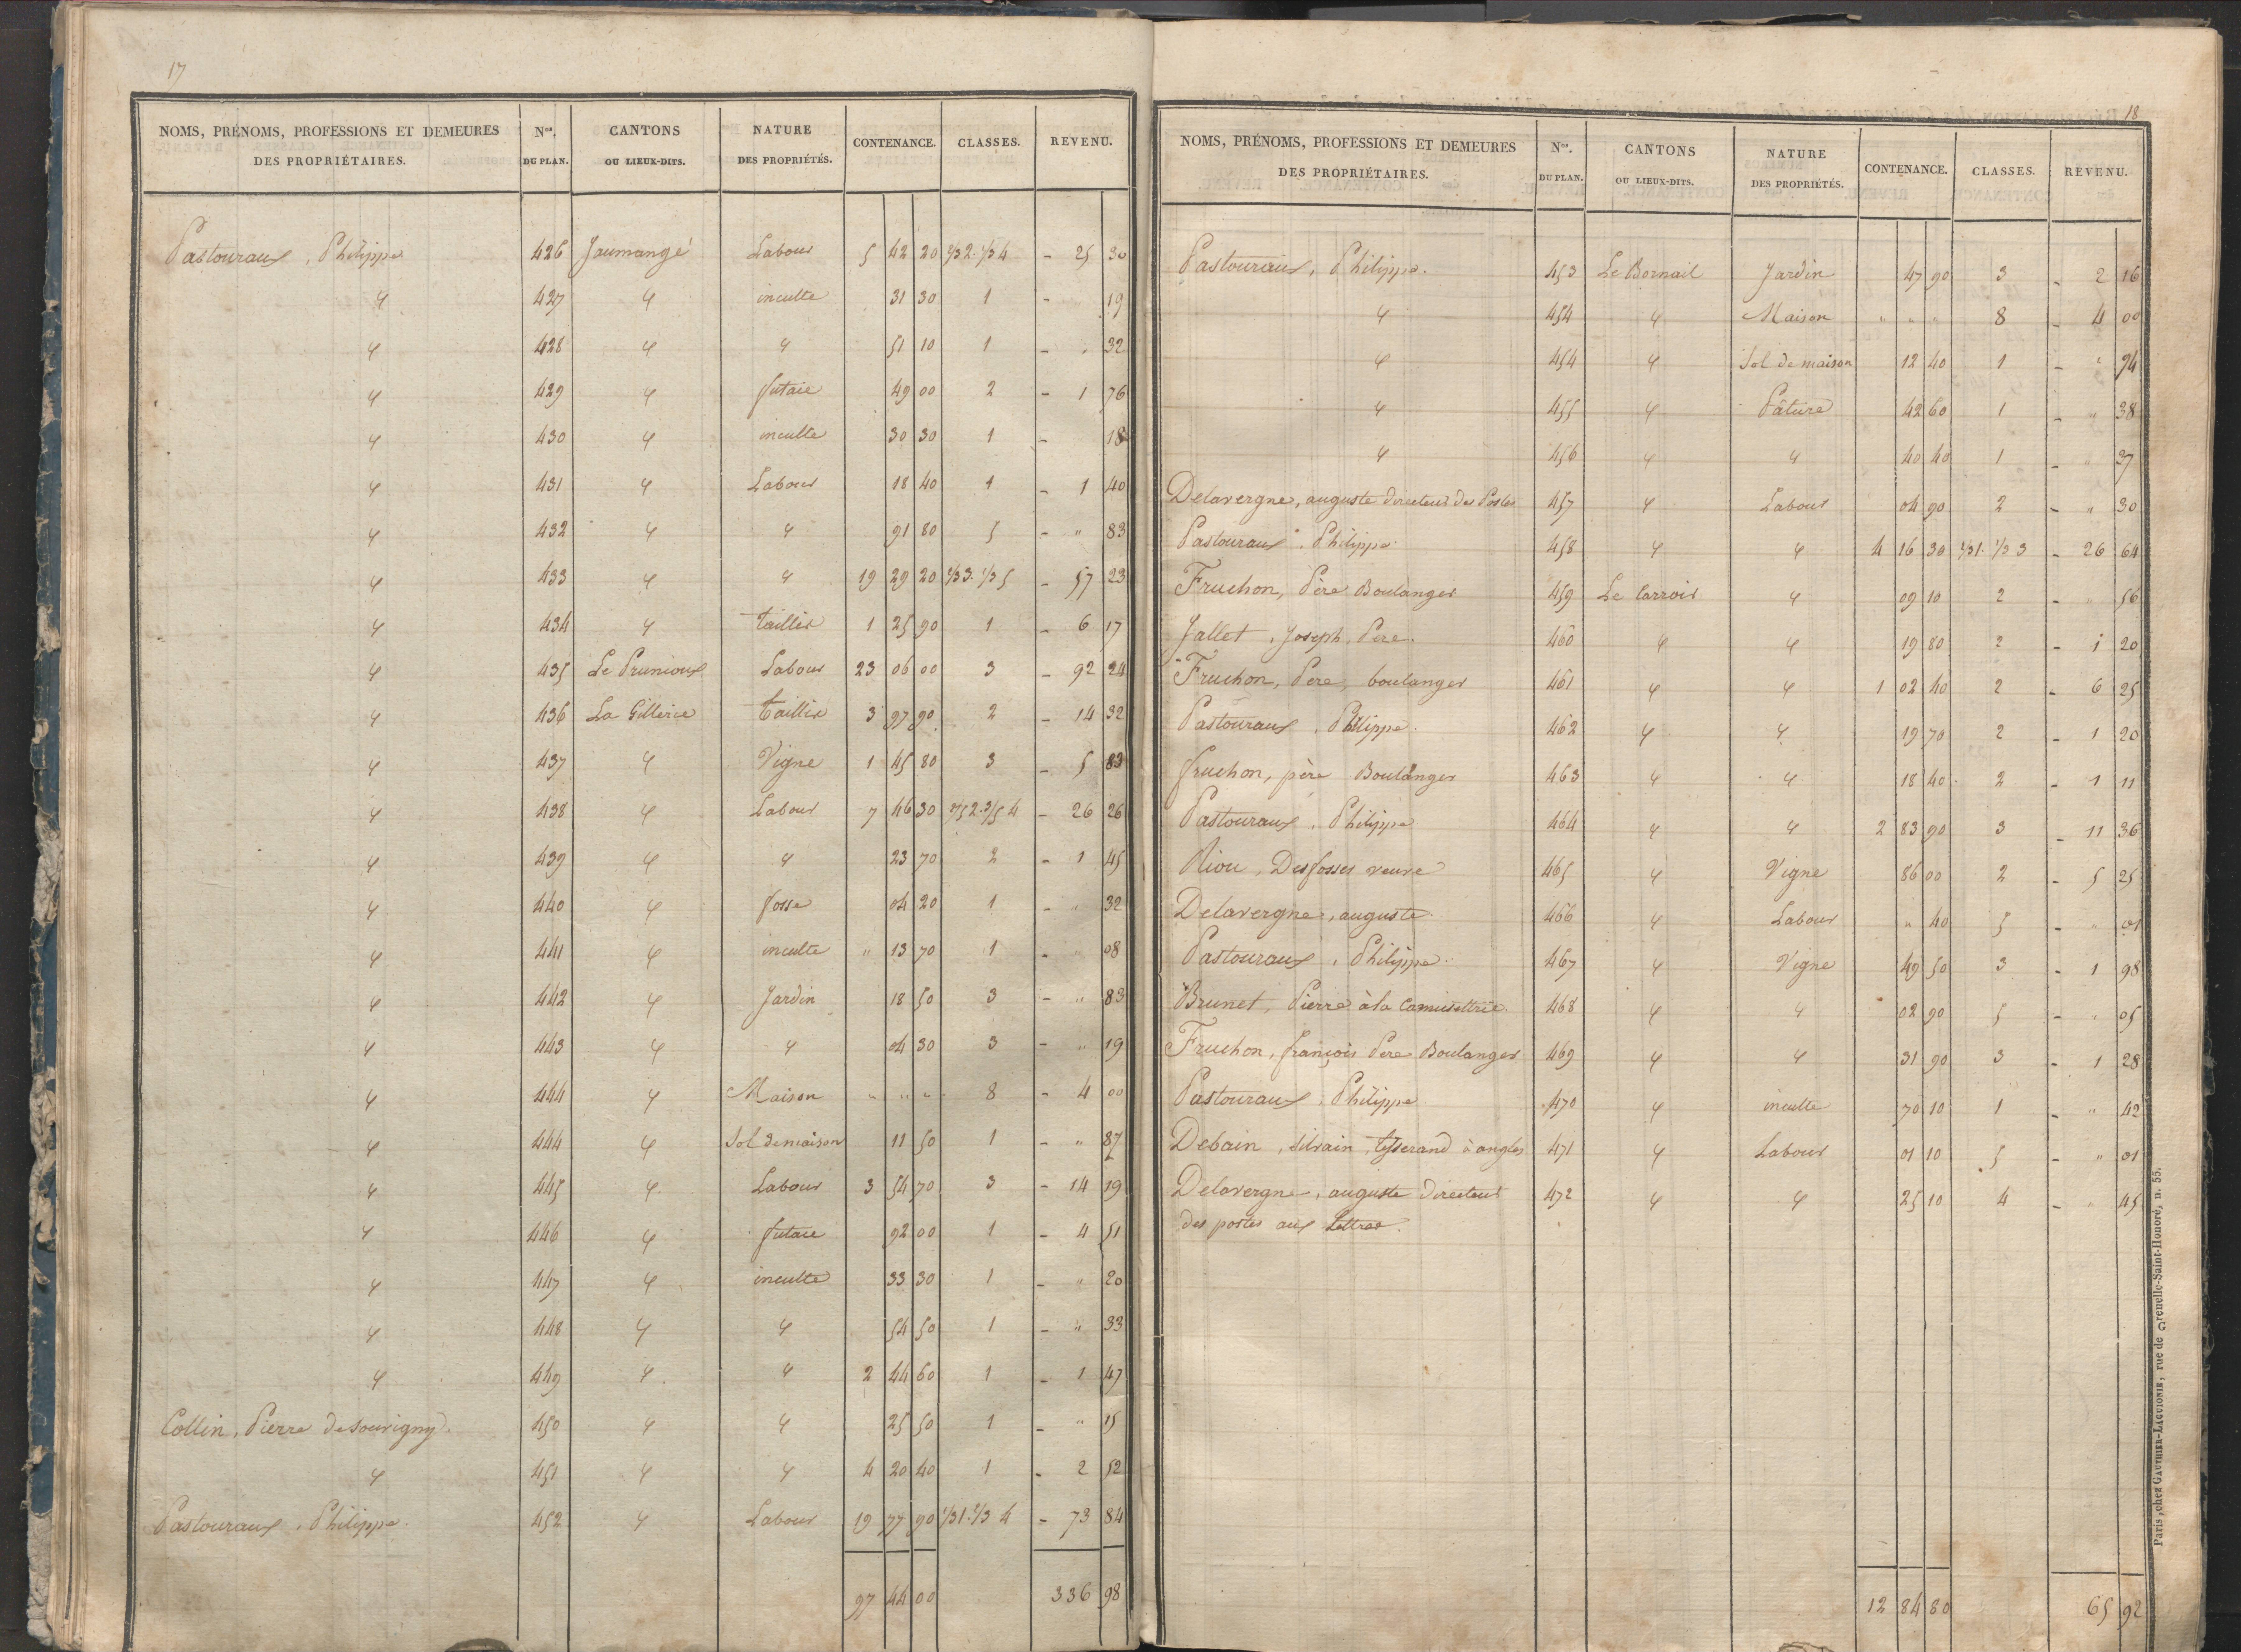 17
NOMS, PRÉNOMS, PROFESSIONS ET DEMEURES DES PROPRIÉTAIRES. Nos. DU PLAN. CANTONS OU LIEUX-DITS. NATURE DES PROPRIÉTÉS. CONTENANCE. CLASSES. REVENU.
Pastouraux, Philippe 426 Jaumangé Labour 5 42 20 2/3 2. 1/3 4 - 25 30
" 427 " inculte 31 30 1 - " 19
" 428 " " 51 10 1 - " 32
" 429 " futaie 49 00 2 - 1 76
" 430 " inculte 30 30 1 - 18
" 431 " Labour 18 40 1 - 1 40
" 432 " " 91 80 5 - " 83
" 433 " " 19 29 20 2/3 3. 1/3 5 - 57 23
" 434 " taillis 1 25 90 1 - 6 17
" 435 Le Prunioux Labour 23 06 00 3 - 92 24
" 436 La Gillerie taillis 3 97 90 2 - 14 32
" 437 " Vigne 1 45 80 3 - 5 83
" 438 " Labour 7 46 30 2/5 2. 3/5 4 - 26 26
" 439 " " 23 70 2 - 1 45
" 440 " fosse 04 20 1 - " 32
" 441 " inculte " 13 70 1 - " 08
" 442 " Jardin 18 50 3 - " 83
" 443 " " 04 30 3 - " 19
" 444 " Maison " " " 8 - 4 00
" 444 " Sol de maison 11 50 1 - " 87
" 445 " Labour 3 54 70 3 - 14 19
" 446 " futaie 92 00 1 - 4 51
" 447 " inculte 33 30 1 - " 20
" 448 " " 54 50 1 - " 33
" 449 " " 2 44 60 1 - 1 47
Collin, Pierre de Souvigny. 450 " " 25 50 1 - " 15
" 451 " " 4 20 40 1 - 2 52
Pastouraux, Philippe. 452 " Labour 19 77 90 1/3 1. 2/3 4 - 73 84
97 44 00 336 98
18
NOMS, PRÉNOMS, PROFESSIONS ET DEMEURES DES PROPRIÉTAIRES. Nos. DU PLAN. CANTONS OU LIEUX-DITS. NATURE DES PROPRIÉTÉS. CONTENANCE. CLASSES. REVENU.
Pastouraux, Philippe. 453 Le Bornail Jardin 47 90 3 - 2 16
" 454 " Maison " " " 8 - 4 00
" 454 " Sol de maison 12 40 1 - " 94
" 455 " Pâture 42 60 1 - " 38
" 456 " " 40 40 1 - " 37
Delavergne, auguste directeur des Postes 457 " Labour 04 90 2 - " 30
Pastouraux, Philippe 458 " " 4 16 30 - 26 64
Fruchon, Père Boulanger 459 Le Carroir " 09 10 2 - " 56
Jallet, Joseph, Père. 460 " " 19 80 2 - 1 20
Fruchon, Père, boulanger 461 " " 1 02 40 2 - 6 25
Pastouraux, Philippe. 462 " " 19 70 2 - 1 20
fruchon, père Boulanger 463 " " 18 40 2 - 1 11
Pastouraux, Philippe 464 " " 2 83 90 3 - 11 36
Riou, Desfosses veuve 465 " Vigne 86 00 2 - 5 25
Delavergne, auguste 466 " Labour " 40 5 - " 01
Pastouraux, Philippe. 467 " Vigne 49 50 3 - 1 98
Brunet, Pierre à la 468 " " 02 90 5 - " 05
Fruchon, françois Père Boulanger 469 " " 31 90 3 - 1 28
Pastouraux, Philippe 470 " inculte 70 10 1 - " 42
Debain, silvain, tisserand à angles 471 " Labour 01 10 5 - " 01
Delavergne, auguste directeur 472 " " 25 10 4 - " 45
des postes aux Lettres.
12 84 80 65 92
Paris, chez GAUTHIER-LAGUIONIE, rue de Grenelle-Saint-Honoré, n. 55.